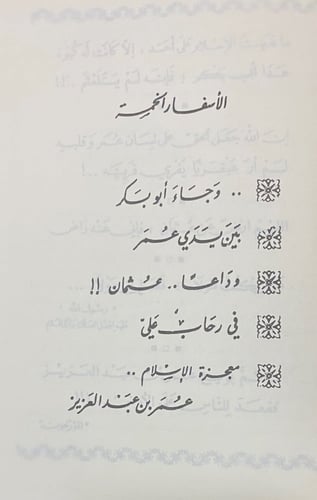 الأسفار الخمسة
.. وجاء أبو بكر
بين يدي عمر
وداعًا .. عثمان !!
في رحاب علي
معجزة الإسلام ..
عمر بن عبد العزيز